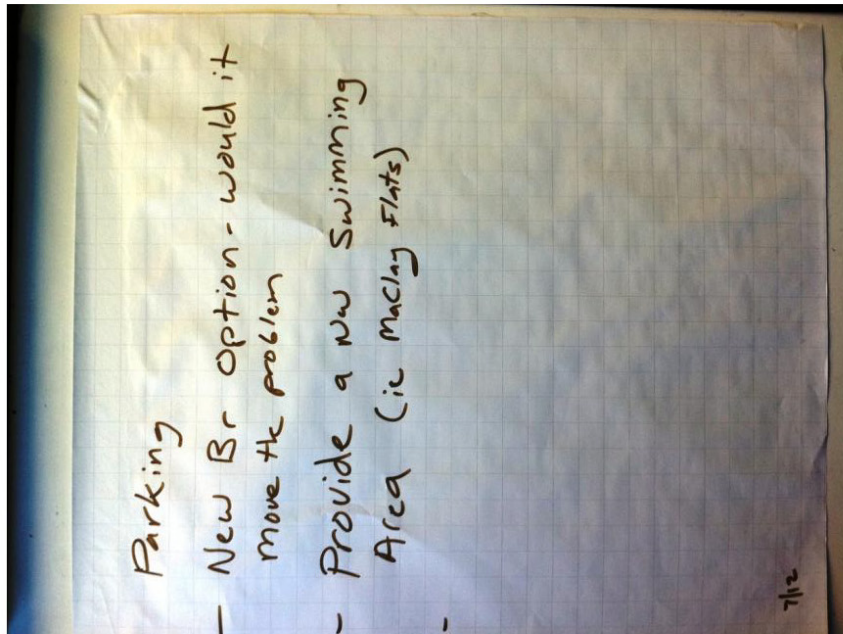 Parking
- New Br Option - would it
move the problem
- Provide a New Swimming
Area (ie Maclay Flats)
-
7/12